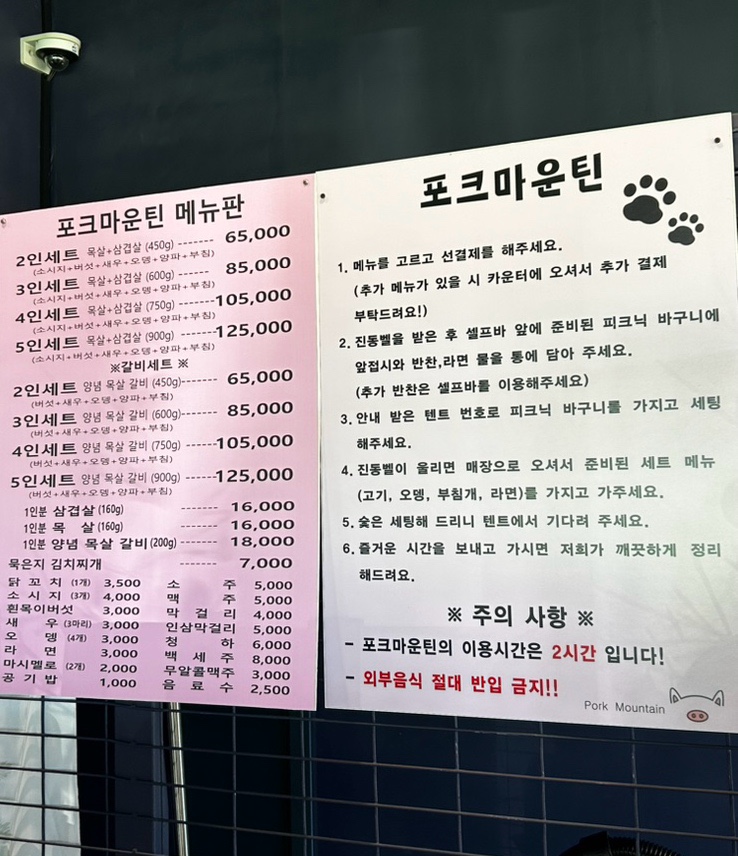 포크마운틴 메뉴판
2인세트 목살+삼겹살 (450g) ------- 65,000
(소시지+버섯+새우+오뎅+양파+부침)
3인세트 목살+삼겹살 (600g) ------ 85,000
(소시지+버섯+새우+오뎅+양파+부침)
4인세트 목살+삼겹살 (750g) ------105,000
(소시지+버섯+새우+오뎅+양파+부침)
5인세트 목살+삼겹살 (900g) ------125,000
(소시지+버섯+새우+오뎅+양파+부침)
※갈비세트 ※
2인세트 양념 목살 갈비 (450g)------- 65,000
(버섯+새우+오뎅+양파+부침)
3인세트 양념 목살 갈비 (600g)------ 85,000
(버섯+새우+오뎅+양파+부침)
4인세트 양념 목살 갈비 (750g) ------105,000
(버섯+새우+오뎅+양파+부침)
5인세트 양념 목살 갈비 (900g) ------125,000
(버섯+새우+오뎅+양파+부침)
1인분 삼겹살 (160g) ------- 16,000
1인분 목 살 (160g) ------- 16,000
1인분 양념 목살 갈비 (200g) ------- 18,000
묵은지 김치찌개 ------- 7,000
닭 꼬 치 (1개) 3,500 소 주 5,000
소 시 지 (3개) 4,000 맥 주 5,000
흰목이버섯 3,000 막 걸 리 4,000
새 우 (3마리) 3,000 인삼막걸리 5,000
오 뎅 (4개) 3,000 청 하 6,000
라 면 3,000 백 세 주 8,000
마시멜로 (2개) 2,000 무알콜맥주 3,000
공 기 밥 1,000 음 료 수 2,500
포크마운틴
1. 메뉴를 고르고 선결제를 해주세요.
(추가 메뉴가 있을 시 카운터에 오셔서 추가 결제
부탁드려요!)
2. 진동벨을 받은 후 셀프바 앞에 준비된 피크닉 바구니에
앞접시와 반찬,라면 물을 통에 담아 주세요.
(추가 반찬은 셀프바를 이용해주세요)
3. 안내 받은 텐트 번호로 피크닉 바구니를 가지고 세팅
해주세요.
4. 진동벨이 울리면 매장으로 오셔서 준비된 세트 메뉴
(고기, 오뎅, 부침개, 라면)를 가지고 가주세요.
5. 숯은 세팅해 드리니 텐트에서 기다려 주세요.
6. 즐거운 시간을 보내고 가시면 저희가 깨끗하게 정리
해드려요.
※ 주의 사항 ※
- 포크마운틴의 이용시간은 2시간 입니다!
- 외부음식 절대 반입 금지!!
Pork Mountain